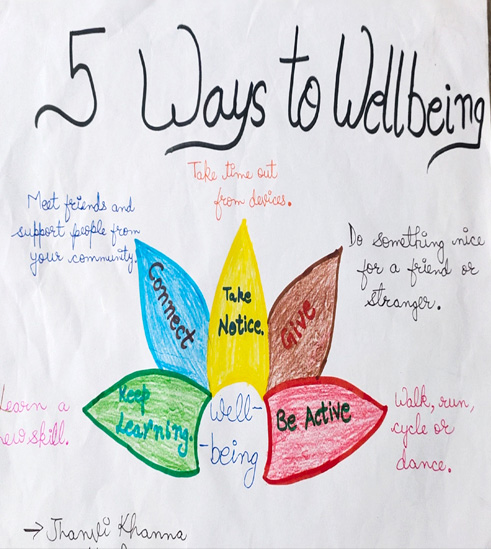 5 Ways to Wellbeing
Take time out
from devices.
Meet friends and
support people from
your community.
Do something nice
for a friend or
stranger.
Connect
Take
Notice.
Give
Keep
Learning.
Well-
-being
Be Active
Learn a
new skill.
Walk, run,
cycle or
dance.
→ Jhanvi Khanna